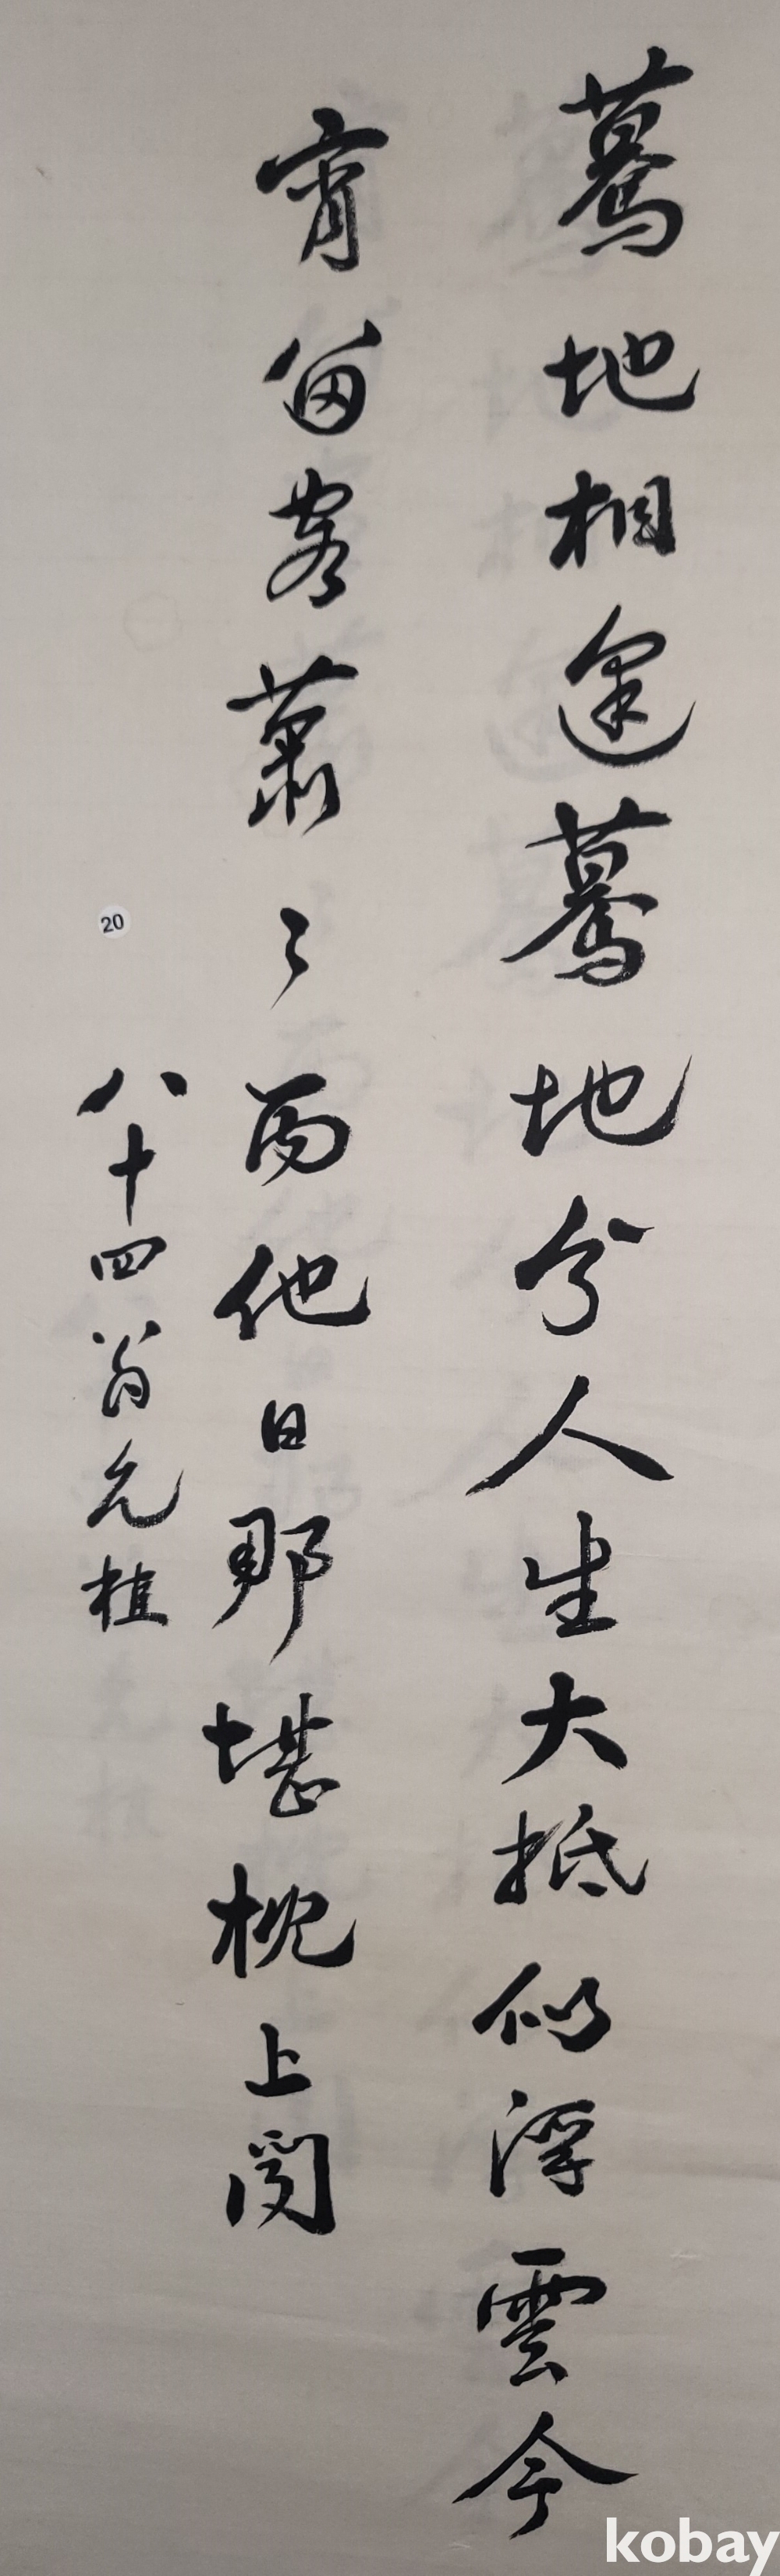 驀地相逢驀地分人生大抵似浮雲今
宵留客蕭〻雨他日那堪枕上聞
八十四翁允植
20
kobay